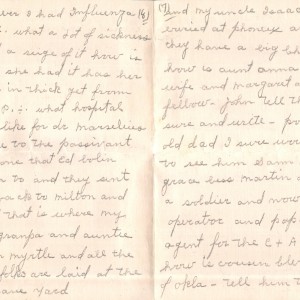 ver I had Influenza (6)
P.S. what a lot of sickness
a surge of it how is
she had it has her
in thick yet from
P.S. what hospital
like for dc marselius
e to the passivant
one that Ed bolin
n to and they sent
back to milton and
that is where my
granpa and auntie
n myrtle and all the
folks are laid at the
ave yard
(7) And my uncle Isaac
buried at phonex a
they have a big
how is aunt anna
wife and margaret a
fellow- John tell th
sure and write- po
old dad I sure wo
to use him damn
grace ess martin
a soldier and now
operator and
agent for the C & A
how is cousin
of okla- tell him